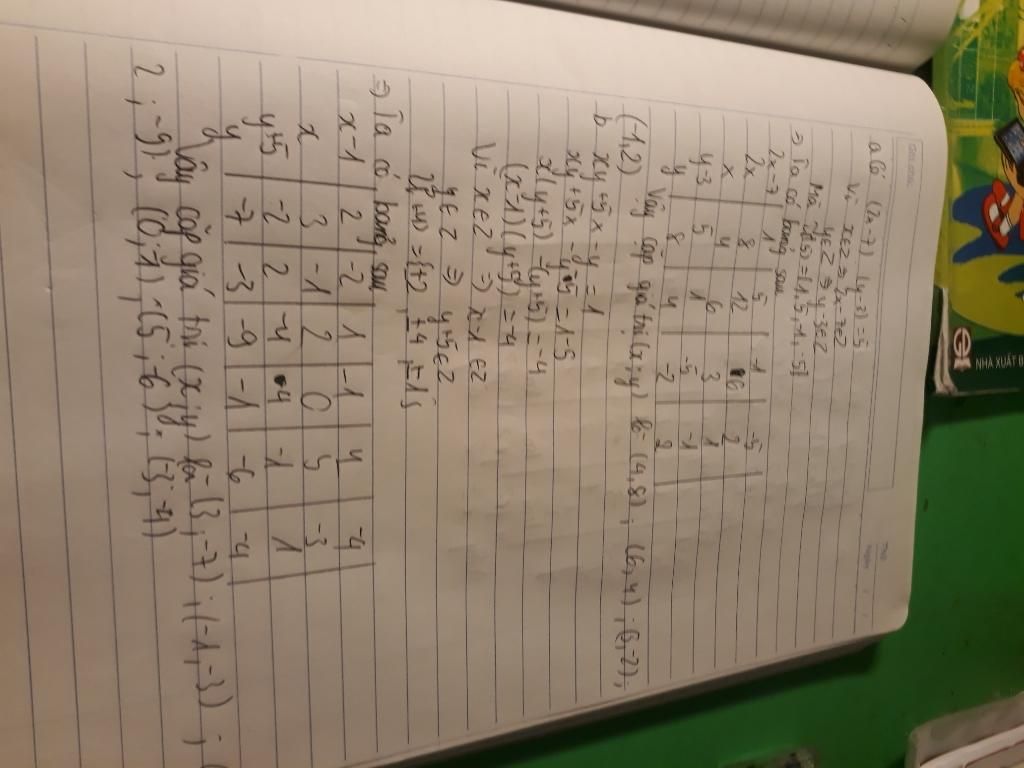 a. Có (2x-7) (y-3) = 5
Vì x∈Z ⇒ 2x-7∈Z
y∈Z ⇒ y-3∈Z
Mà Ư(5) = {1, 5, -1, -5}
⇒ Ta có bảng sau
2x-7 | 1 | 5 | -1 | -5
2x | 8 | 12 | 6 | 2
x | 4 | 6 | 3 | 1
y-3 | 5 | 1 | -5 | -1
y | 8 | 4 | -2 | 2
Vậy cặp giá trị (x;y) là (4,8); (6,4); (3,-2);
(-1,2)
b xy+5x-y = 1
xy+5x-y-5 = 1-5
x(y+5) -(y+5) = -4
(x-1)(y+5) = -4
Vì x∈Z ⇒ x-1 ∈Z
y∈Z ⇒ y+5∈Z
Ư(4) = {±2, ±4, ±1}
⇒ Ta có bảng sau
x-1 | 2 | -2 | 1 | -1 | 4 | -4
x | 3 | -1 | 2 | 0 | 5 | -3
y+5 | -2 | 2 | -4 | 4 | -1 | 1
y | -7 | -3 | -9 | -1 | -6 | -4
Vậy cặp giá trị (x;y) là (3,-7); (-1,-3); (
2;-9); (0;-1); (5;-6); (-3;-4)
NHÀ XUẤT B